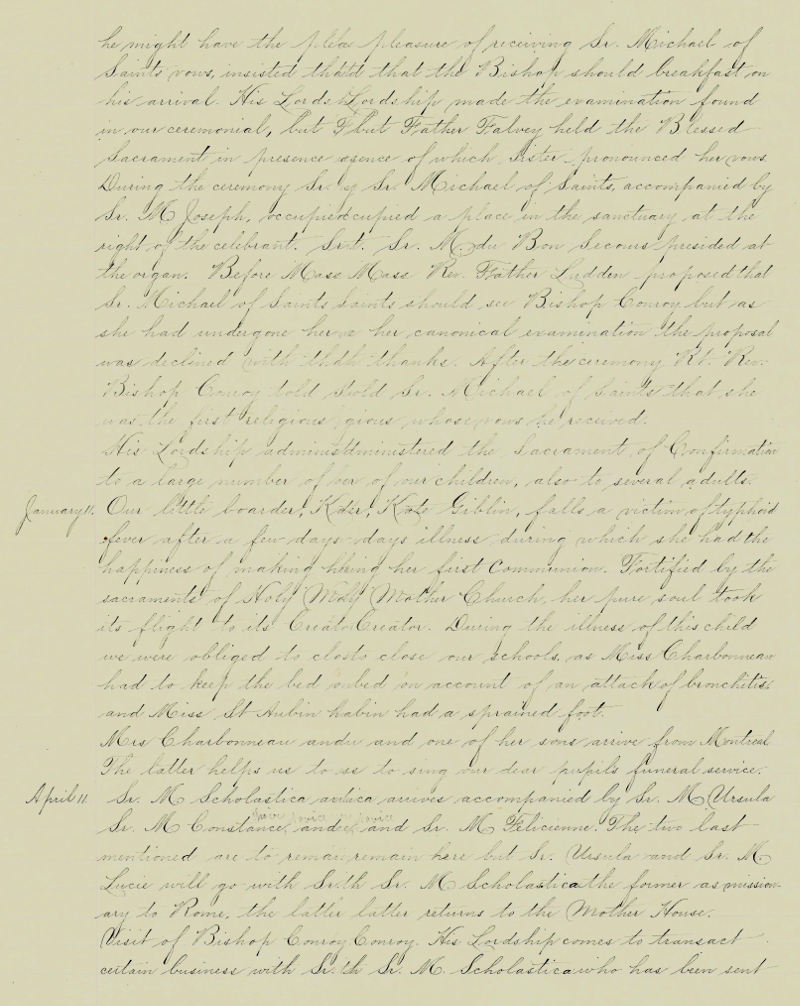 he might have the plea pleasure of receiving Sr. Michael of
Saints vows, insisted that that the Bishop should breakfast on
his arrival. His Lords Lordship made the examination found
in our ceremonial, but but Father Falvey held the Blessed
Sacrament in presence esence of which Sister pronounced her vows.
During the ceremony Sr. Sr. Michael of Saints, accompanied by
Sr. M Joseph, occupied ccupied a place in the sanctuary at the
right of the celebrant. Sr. Sr. M du Bon Secours presided at
the organ. Before Mass Mass Rev. Father Ludden proposed that
Sr. Michael of Saints Saints should see Bishop Conroy but as
she had undergone her her canonical examination the proposal
was declined with thanks. After the ceremony Rt. Rev.
Bishop Conroy told told Sr. Michael of Saints that she
was the first religious gious whose vows he received.
His Lordship administ dministered the Sacrament of Confirmation
to a large number of of our children, also to several adults.
January 11. Our little boarder, Kate Giblin, falls a victim of typhoid
fever after a few days days illness during which she had the
happiness of making king her first Communion. Fortified by the
sacraments of Holy Holy Mother Church, her pure soul took
its flight to its Creato Creator. During the illness of this child
we were obliged to clos to close our schools, as Miss Charbonneau
had to keep the bed bed on account of an attack of bronchitis
and Miss St Aubin had a sprained foot.
Mrs Charbonneau and and one of her sons arrive from Montreal
The latter helps us to us to sing our dear pupil's funeral service.
April 11. Sr. M Scholastica arrives accompanied by Sr. M Ursula
Sr. M Constance, and and Sr. M Felicienne. The two last
mentioned are to remain remain here but Sr. Ursula and Sr. M.
Lucie will go with Sr. th Sr. M Scholastica the former as mission-
ary to Rome, the latter latter returns to the Mother House.
Visit of Bishop Conroy Conroy. His Lordship comes to transact
certain business with Sr. th Sr. M. Scholastica who has been sent